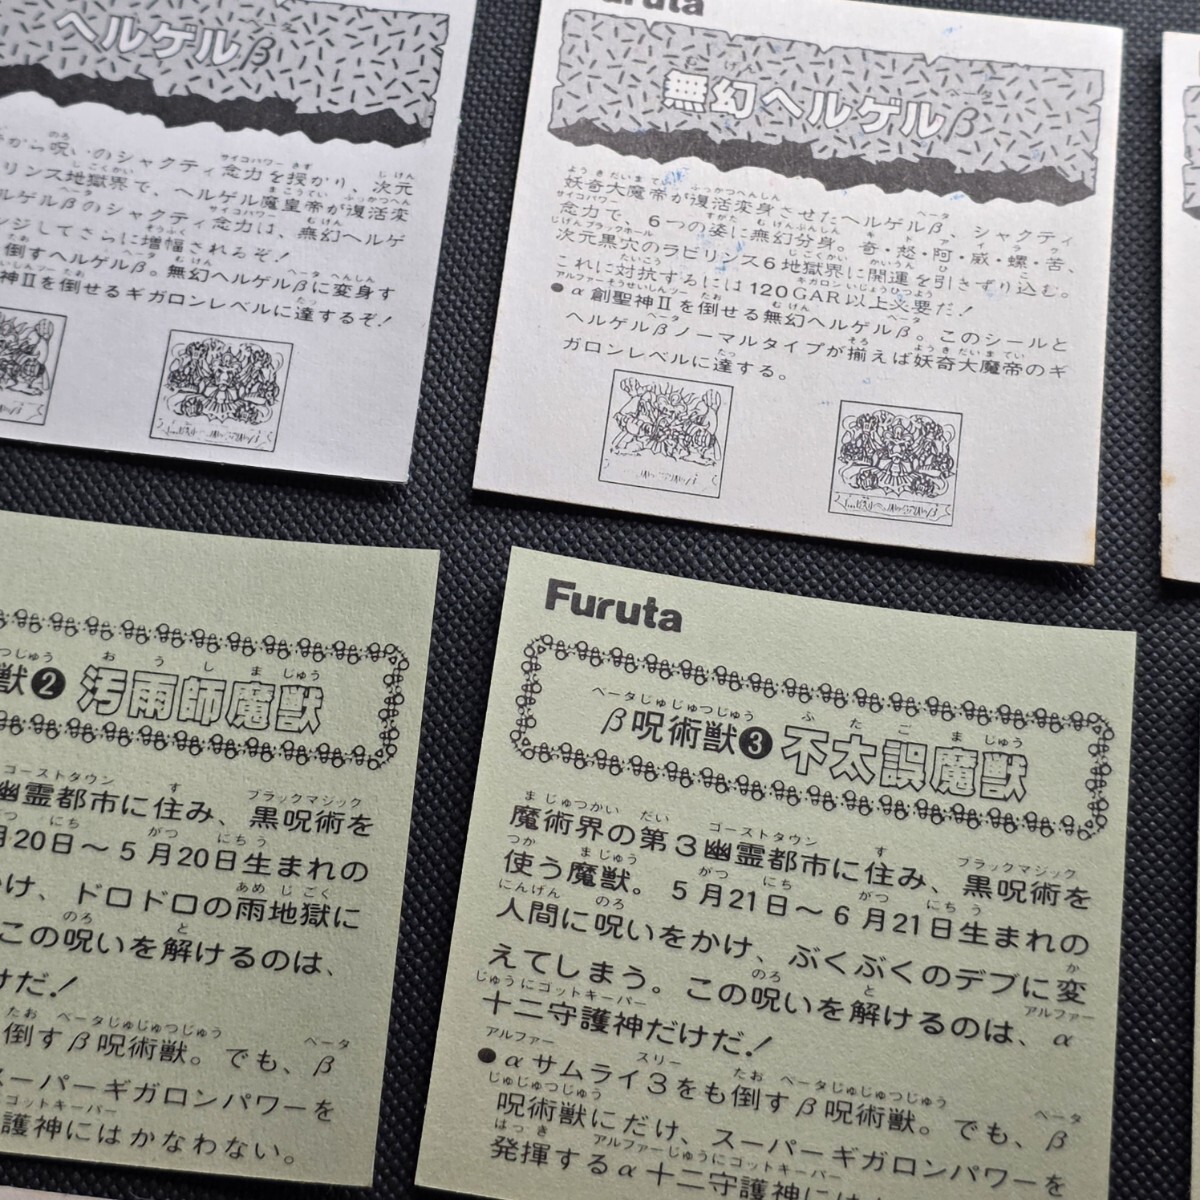 ヘルゲルβ
から呪いのシャクティ念力を授かり、次元
リンス地獄界で、ヘルゲル魔皇帝が復活変
ルゲルβのシャクティ念力は、無幻ヘルゲ
ンジしてさらに増幅されるぞ!
倒すヘルゲルβ。無幻ヘルゲルβに変身す
神IIを倒せるギガロンレベルに達するぞ!
Furuta
無幻ヘルゲルβ
妖奇大魔帝が復活変身させたヘルゲルβ、シャクティ
念力で、6つの姿に無幻分身。奇・怒・阿・威・螺・苦、
次元黒穴のラビリンス6地獄界に開運を引きずり込む。
これに対抗するには120GAR以上必要だ!
●α創聖神IIを倒せる無幻ヘルゲルβ。このシールと
ヘルゲルβノーマルタイプが揃えば妖奇大魔帝のギ
ガロンレベルに達する。
獣❷ 汚雨師魔獣
幽霊都市に住み、黒呪術を
月20日〜5月20日生まれの
け、ドロドロの雨地獄に
この呪いを解けるのは、
けだ!
倒すβ呪術獣。でも、β
スーパーギガロンパワーを
護神にはかなわない。
Furuta
β呪術獣❸ 不太誤魔獣
魔術界の第3幽霊都市に住み、黒呪術を
使う魔獣。5月21日〜6月21日生まれの
人間に呪いをかけ、ぶくぶくのデブに変
えてしまう。この呪いを解けるのは、α
十二守護神だけだ!
●αサムライ3をも倒すβ呪術獣。でも、β
呪術獣にだけ、スーパーギガロンパワーを
発揮するα十二守護神には